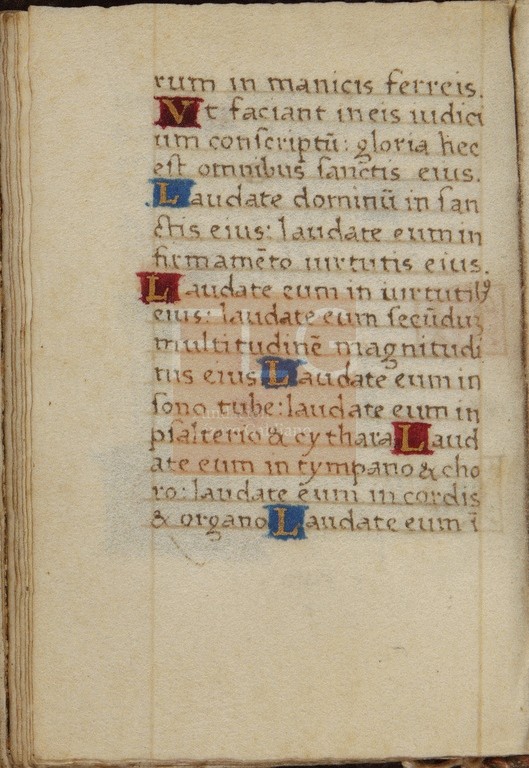 rum in manicis ferreis.
Vt faciant in eis iudici
um conscriptū: gloria hec
est omnibus sanctis eius.
Laudate dominū in san
ctis eius: laudate eum in
firmamēto uirtutis eius.
Laudate eum in uirtutibꝰ
eius: laudate eum secūduʒ
multitudinē magnitudi
nis eius Laudate eum in
sono tube: laudate eum in
psalterio & cythara Laud
ate eum in tympano & cho
ro: laudate eum in cordis
& organo Laudate eum ī